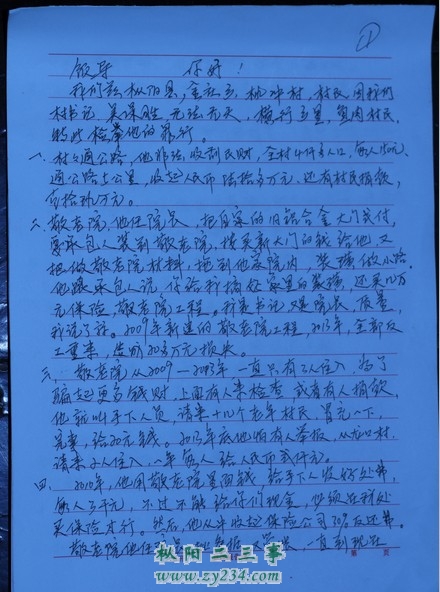 ①
领导 你好！
我们是枞阳县，金社乡，桃冲村，村民，因我们
村书记 吴保胜，无法无天，横行乡里，鱼肉村民，
特此检举他的罪行。
一、村村通公路，他非法收刮民财，全村4千多人口，每人
通公路5公里，收起人民币 陆拾多万元，还有村民捐款，
二、敬老院，他任院长，把自家的旧铝合金大门
要承包人装到敬老院，接买新大门的钱给他，又
把做敬老院材料，拖到他家院内，装璜做小路，
他跟承包人说，你给我搞好家里的装璜，还买
元保险，敬老院工程。我是书记又是院长，质量，
我说了算。2009年新建的敬老院工程，2013年，全部反
工重来，造成20多万元损失。
三、敬老院从2009—2013年一直只有2人住入，为了
骗起更多钱财，上面有人来检查，或者有人捐款，
他就叫手下人员，请来十几个老年村民，冒充一下，
完毕，给20元钱。2013年底他怕有人举报，从
请来2人住入，一年每人给人民币
四、2010年，他用敬老院里面钱，给手下人发好处费，
每人3千元，不过不能给你们现金，必须在我处
买保险才行。然后，他从中收起保险公司70%反还费。
敬老院他任 一直到现在
枞阳二三事
www.zy234.com